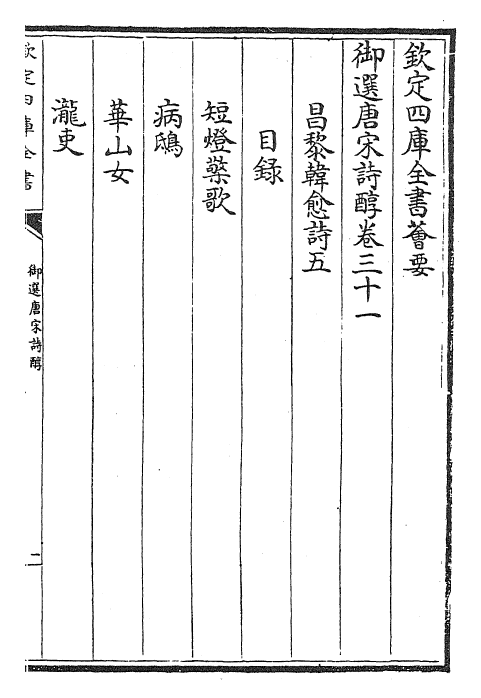 欽定四庫全書薈要
御選唐宋詩醇卷三十一
昌黎韓愈詩五
目録
短燈檠歌
病鴟
華山女
瀧吏
欽定四庫全書
御選唐宋詩醇
二